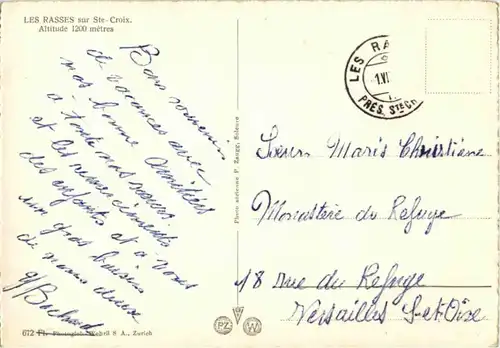 LES RASSES sur Ste-Croix.
Altitude 1200 mètres
Bons souvenirs
de vacances avec
nos bonne amitiées
à toute nos soeurs
et les remerciements
des enfants et à vous
un gros baiser
de nous deux
LES RA
1.VI
PRÈS STE CR
Photo aérienne P. Zaugg, Soleure
Soeur Marie Christiane
Monastère du Refuge
18 Rue du Refuge
Versailles S-et-Oise
672 Photoglob-Wehrli S A., Zurich
PZ
W